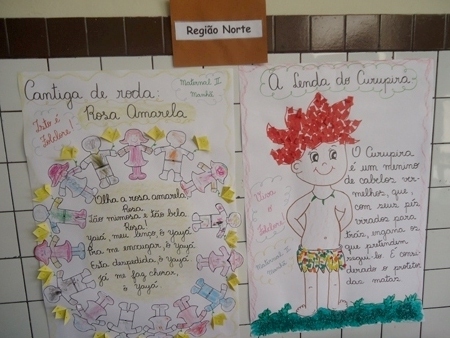 Região Norte
Cantiga de roda:
Rosa Amarela
Maternal II
Manhã
Isto é
Folclore!
Olha a rosa amarela!
Rosa
Tão mimosa e tão bela
Rosa!
yaiá, meu lenço, ô yayá
pra me enxugar, ô yayá
Esta despedida, ô yayá
já me faz chorar,
ô yayá.
A Lenda do Curupira
O Curupira
é um menino
de cabelos ver-
melhos, que,
com seus pés
virados para
trás, engana os
que pretendem
segui-lo. É consi-
derado o protetor
das matas.
Viva o
Folclore
Maternal II
Manhã